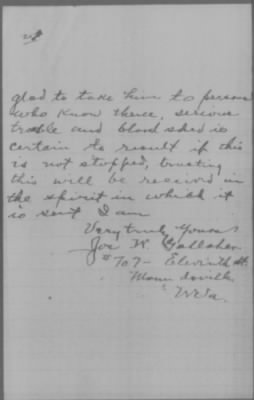 glad to take him to persons
who know these, serious
trouble and blood shed is
certain to result if this
is not stopped, trusting
this will be received in
the spirit in which it
is sent I am
Very truly Yours
Joe W. Gallaher
#707- Elevinth St.
Moundsville
W.Va.